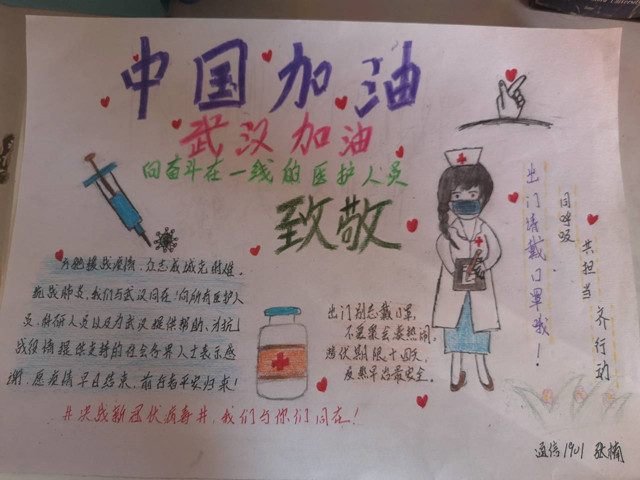 中国加油
武汉加油
向奋斗在一线的医护人员
致敬
出门请戴口罩哦！
同呼吸
共担当
齐行动
万她援战疫情，众志成城克时难。
抗战肺炎，我们与武汉同在！向所有医护人
员，科研人员以及为武汉提供帮助、为抗
战疫情提供支持的社会各界人士表示感
谢，愿疫情早日结束，前行者平安归来！
出门别忘戴口罩，
不要聚会凑热闹。
潜伏期限十四天，
发热早治最安全。
共决战新冠状病毒井，我们与你们同在！
通信1901 张楠